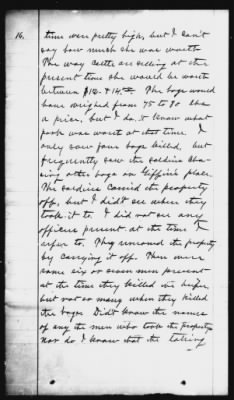 14.
time were pretty high, but I can't
say how much she was worth.
The way cattle are selling at the
present time she would be worth
between $12. & 14.00. The hogs would
have weighed from 75 to 80 lbs
a piece, but I do.n't know what
pork was worth at that time. I
only saw four hogs killed, but
frequently saw the soldiers cha-
sing other hogs on Giffin's place.
The soldiers carried the property
off, but I didn't see where they
took it to. I did not see any
officers present at the time I
refer to. They removed the property
by carrying it off. There were
some six or seven men present
at the time they killed the heifer
but not so many when they killed
the hogs. Didn't know the names
of any the men who took the property
nor do I know what the